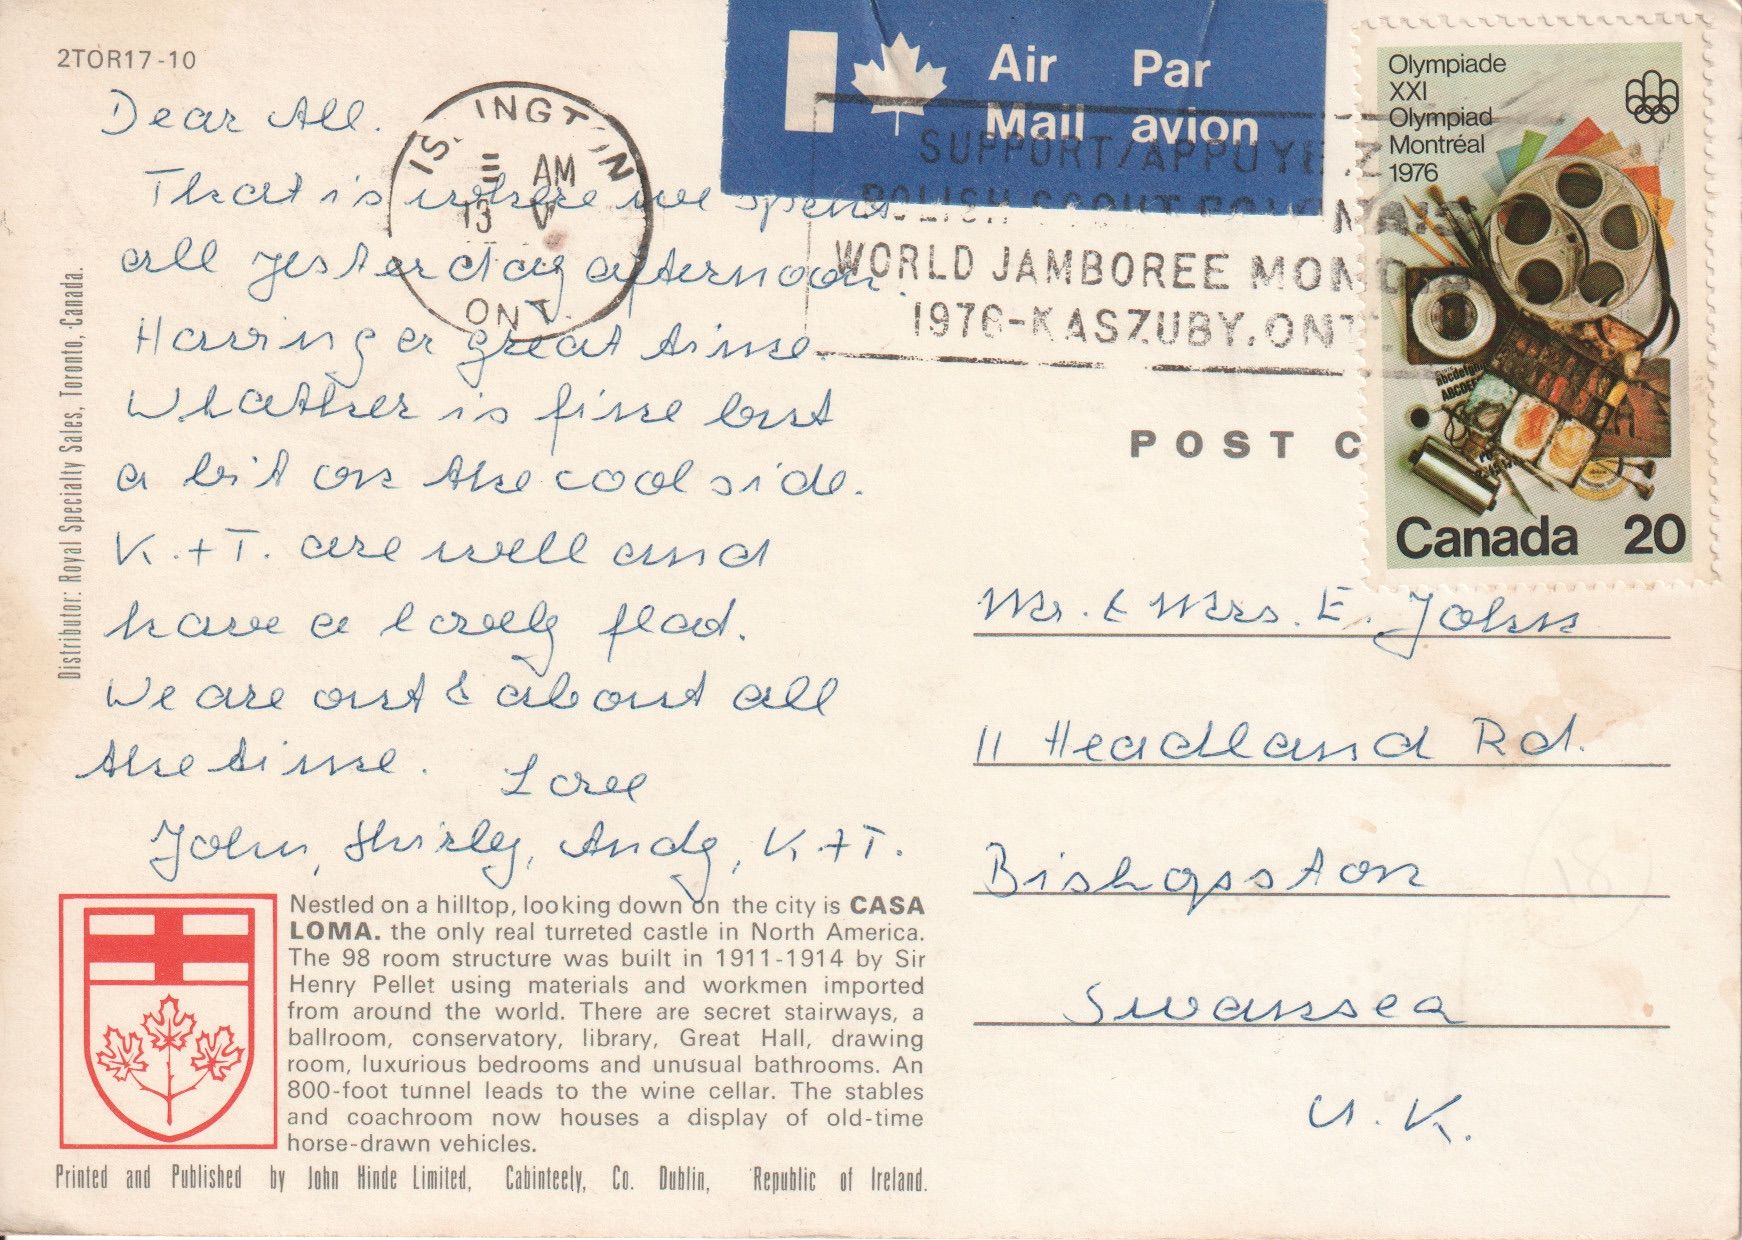 2TOR17-10
Dear All.
That is where we spent
all yesterday afternoon.
Having a great time.
Whather is fine but
a bit on the cool side.
K.+T. are well and
have a lovely flat.
We are out & about all
the time. Love
John, Shirley, Andy, K.+T.
Distributor: Royal Specialty Sales, Toronto, Canada.
Nestled on a hilltop, looking down on the city is CASA
LOMA. the only real turreted castle in North America.
The 98 room structure was built in 1911-1914 by Sir
Henry Pellet using materials and workmen imported
from around the world. There are secret stairways, a
ballroom, conservatory, library, Great Hall, drawing
room, luxurious bedrooms and unusual bathrooms. An
800-foot tunnel leads to the wine cellar. The stables
and coachroom now houses a display of old-time
horse-drawn vehicles.
Printed and Published by John Hinde Limited, Cabinteely, Co. Dublin, Republic of Ireland.
ISLINGTON
AM
13 V
ONT.
Air Par
Mail avion
SUPPORT/APPUYEZ
POLISH SCOUT
WORLD JAMBOREE MONDIAL
1976-KASZUBY, ONT
Olympiade
XXI
Olympiad
Montréal
1976
Canada 20
POST C
Mr. & Mrs. E. John
11 Headland Rd.
Bishopston
Swansea
U.K.